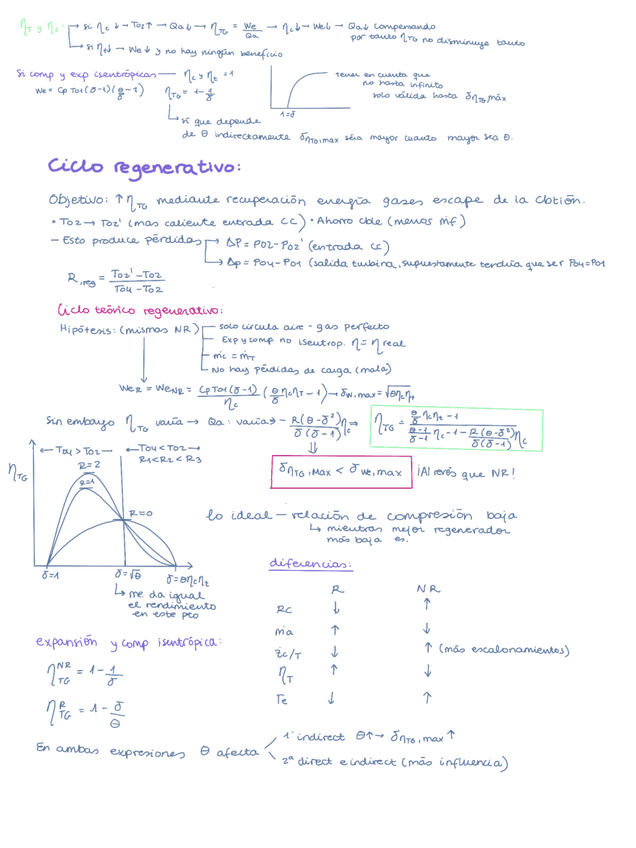 η_T y η_c: si η_c ↓ → T02 ↑ → Qa ↓ → η_TG = We/Qa → η_c ↓ → We ↓ → Qa ↓ compensando
por tanto η_TG no disminuye tanto
si η_t ↓ → We ↓ y no hay ningún beneficio
Si comp y exp isentrópicas — η_c y η_t = 1
We = Cp T01 (δ-1)(θ/δ - 1)
η_TG = 1 - 1/δ
sí que depende
de θ indirectamente δη_TG,max será mayor cuanto mayor sea θ.
tener en cuenta que
no hasta infinito
solo válida hasta δη_TG,máx
1=δ
Ciclo regenerativo:
Objetivo: ↑ η_TG mediante recuperación energía gases escape de la cbtión.
• T02 → T02' (mas caliente entrada CC) • Ahorro cble (menos ṁf)
- Esto produce pérdidas → ΔP = P02 - P02' (entrada CC)
→ Δp = P04 - P01 (salida turbina, supuestamente tendría que ser P04 = P01
R,reg = (T02' - T02)/(T04 - T02)
Ciclo teórico regenerativo:
Hipótesis: (mismas NR)
solo circula aire - gas perfecto
Exp y comp no isentrop. η = η real
ṁc = ṁT
No hay pérdidas de carga (mala)
We_R = We_NR = Cp T01 (δ-1)/η_c (θ/δ η_c η_t - 1) → δw,max = √(θ η_c η_t)
Sin embargo η_TG varía → Qa: varía → - R(θ-δ²)/(δ(δ-1)) η_c ⇒
η_TG = (θ/δ η_c η_t - 1)/((θ-1)/(δ-1) η_c - 1 - R(θ-δ²)/(δ(δ-1)) η_c)
δη_TG,Max < δwe,max
¡Al revés que NR!
η_TG
← T04 > T02 →
← T04 < T02 →
R1 < R2 < R3
R=2
R=1
R=0
δ=1
δ=√θ
δ=θη_cη_t
me da igual
el rendimiento
en este pto
lo ideal — relación de compresión baja
mientras mejor regenerador
más baja es.
diferencias:
R NR
Rc ↓ ↑
ṁa ↑ ↓
żc/T ↓ ↑ (más escalonamientos)
η_T ↑ ↓
Te ↓ ↑
expansión y comp isentrópica:
η_TG^NR = 1 - 1/δ
η_TG^R = 1 - δ/θ
En ambas expresiones θ afecta
1ª indirect θ↑ → δη_TG,max ↑
2ª direct e indirect (más influencia)